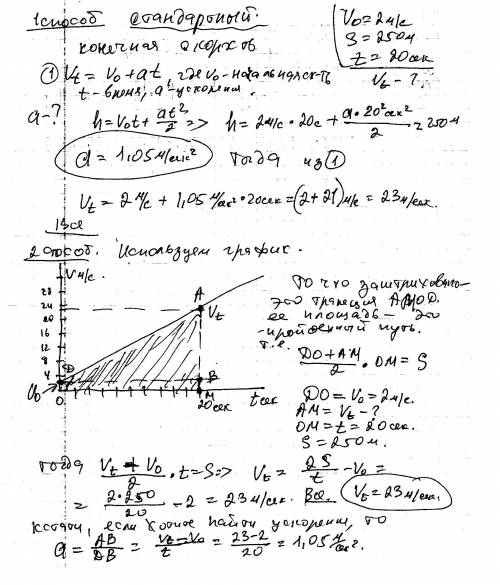 1 способ стандартный.
конечная скорость
V₀ = 2 м/с
S = 250 м
t = 20 сек
Vt - ?
① Vt = V₀ + at, где V₀ - начальная ск-ть
t - время, a - ускорение.
a - ?
h = V₀t + at²/2 => h = 2 м/с · 20с + a·20²сек²/2 = 250 м
a = 1,05 м/сек² тогда из ①
Vt = 2 м/с + 1,05 м/сек² · 20сек = (2 + 21) м/с = 23 м/сек.
Все
2 способ. Используем график.
V м/с.
28
24
20
16
12
8
4
V₀
D
A
Vt
B
M
0
20 сек
t сек
То что заштриховано-
это трапеция AMOD.
ее площадь - это
пройденный путь.
т.е.
DO + AM/2 · OM = S
DO = V₀ = 2 м/с.
AM = Vt - ?
OM = t = 20 сек.
S = 250 м.
тогда Vt + V₀/2 · t = S => Vt = 2S/t - V₀ =
= 2·250/20 - 2 = 23 м/сек. Все. Vt = 23 м/сек.
кстати, если хотите найти ускорение, то
a = AB/DB = Vt - V₀/t = 23 - 2/20 = 1,05 м/сек².